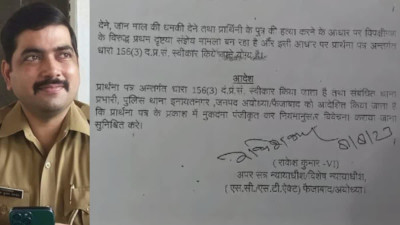 देने, जान माल की धमकी देने तथा प्रार्थिनी के पुत्र की हत्या करने के आधार पर विपक्षीगण
के विरूद्ध प्रथम दृष्टया संज्ञेय मामला बन रहा है और इसी आधार पर प्रार्थना पत्र अन्तर्गत
धारा 156(3) द.प्र.सं. स्वीकार किये जाने योग्य है।
आदेश
प्रार्थना पत्र अन्तर्गत धारा 156(3) द.प्र.सं. स्वीकार किया जाता है तथा संबंधित थाना
प्रभारी, पुलिस थाना इनायतनगर, जनपद अयोध्या/फैजाबाद को आदेशित किया जाता है
कि प्रार्थना पत्र के प्रकाश में मुकदमा पंजीकृत कर नियमानुसार विवेचना कराया जाना
सुनिश्चित करें।
(राकेश कुमार -VI)
अपर सत्र न्यायाधीश/विशेष न्यायाधीश,
(एस.सी./एस.टी.ऐक्ट) फैजाबाद/अयोध्या।